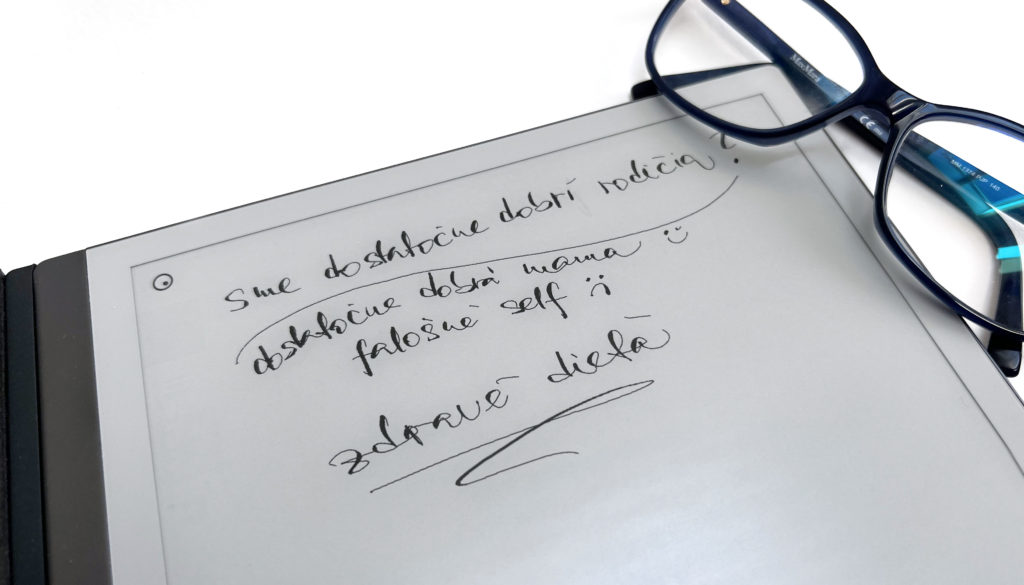 sme dostatočne dobrí rodičia?
dostatočne dobrá mama :)
falošné self :(
zdravé dieťa
MaxMara
CE